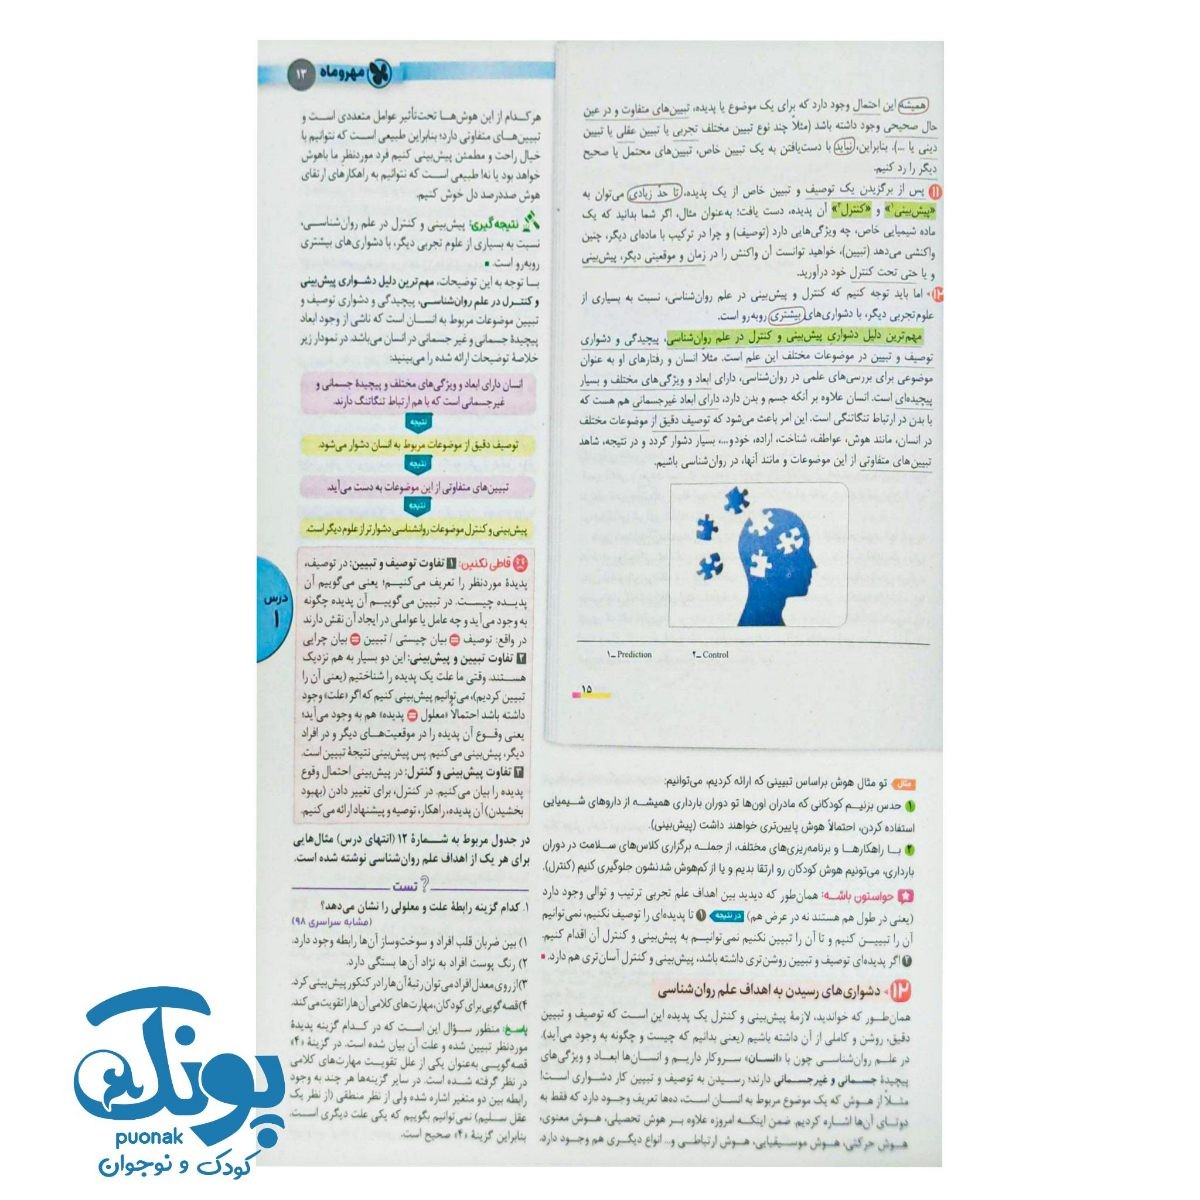 مهروماه
۱۳
همیشه این احتمال وجود دارد که برای یک موضوع یا پدیده، تبیین‌های متفاوت و در عین
حال صحیحی وجود داشته باشد (مثلاً چند نوع تبیین مختلف تجربی یا تبیین عقلی یا تبیین
دینی یا ...). بنابراین، نباید با دست‌یافتن به یک تبیین خاص، تبیین‌های محتمل یا صحیح
دیگر را رد کنیم.
۱۱ پس از برگزیدن یک توصیف و تبیین خاص از یک پدیده، تا حد زیادی می‌توان به
«پیش‌بینی۱» و «کنترل۲» آن پدیده، دست یافت؛ به‌عنوان مثال، اگر شما بدانید که یک
ماده شیمیایی خاص، چه ویژگی‌هایی دارد (توصیف) و چرا در ترکیب با ماده‌ای دیگر، چنین
واکنشی می‌دهد (تبیین)، خواهید توانست آن واکنش را در زمان و موقعیتی دیگر، پیش‌بینی
و یا حتی تحت کنترل خود درآورید.
۱۲ اما باید توجه کنیم که کنترل و پیش‌بینی در علم روان‌شناسی، نسبت به بسیاری از
علوم تجربی دیگر، با دشواری‌های بیشتری روبه‌رو است.
مهم‌ترین دلیل دشواری پیش‌بینی و کنترل در علم روان‌شناسی، پیچیدگی و دشواری
توصیف و تبیین در موضوعات مختلف این علم است. مثلاً انسان و رفتارهای او به عنوان
موضوعی برای بررسی‌های علمی در روان‌شناسی، دارای ابعاد و ویژگی‌های مختلف و بسیار
پیچیده‌ای است. انسان علاوه بر آنکه جسم و بدن دارد، دارای ابعاد غیرجسمانی هم هست که
با بدن در ارتباط تنگاتنگی است. این امر باعث می‌شود که توصیف دقیق از موضوعات مختلف
در انسان، مانند هوش، عواطف، شناخت، اراده، خود و...، بسیار دشوار گردد و در نتیجه، شاهد
تبیین‌های متفاوتی از این موضوعات و مانند آنها، در روان‌شناسی باشیم.
۱ـ Prediction ۲ـ Control
۱۵
مثال تو مثال هوش براساس تبیینی که ارائه کردیم، می‌توانیم:
۱ حدس بزنیم کودکانی که مادران اون‌ها تو دوران بارداری همیشه از داروهای شیمیایی
استفاده کردن، احتمالاً هوش پایین‌تری خواهند داشت (پیش‌بینی).
۲ با راهکارها و برنامه‌ریزی‌های مختلف، از جمله برگزاری کلاس‌های سلامت در دوران
بارداری، می‌تونیم هوش کودکان رو ارتقا بدیم و یا از کم‌هوش شدنشون جلوگیری کنیم (کنترل).
حواستون باشه: همان‌طور که دیدید بین اهداف علم تجربی ترتیب و توالی وجود دارد
(یعنی در طول هم هستند نه در عرض هم) در نتیجه ۱ تا پدیده‌ای را توصیف نکنیم، نمی‌توانیم
آن را تبیین کنیم و تا آن را تبیین نکنیم نمی‌توانیم به پیش‌بینی و کنترل آن اقدام کنیم.
۲ اگر پدیده‌ای توصیف و تبیین روشن‌تری داشته باشد، پیش‌بینی و کنترل آسان‌تری هم دارد.
۱۲ دشواری‌های رسیدن به اهداف علم روان‌شناسی
همان‌طور که خواندید، لازمهٔ پیش‌بینی و کنترل یک پدیده این است که توصیف و تبیین
دقیق، روشن و کاملی از آن داشته باشیم (یعنی بدانیم که چیست و چگونه به وجود می‌آید).
در علم روان‌شناسی چون با «انسان» سروکار داریم و انسان‌ها ابعاد و ویژگی‌های
پیچیدهٔ جسمانی و غیرجسمانی دارند؛ رسیدن به توصیف و تبیین کار دشواری است!
مثلاً از هوش که یک موضوع مربوط به انسان است، ده‌ها تعریف وجود دارد که فقط به
دوتای آن‌ها اشاره کردیم. ضمن اینکه امروزه علاوه بر هوش تحصیلی، هوش معنوی،
هوش حرکتی، هوش موسیقیایی، هوش ارتباطی و... انواع دیگری هم وجود دارد.
هرکدام از این هوش‌ها تحت‌تأثیر عوامل متعددی است و
تبیین‌های متفاوتی دارد؛ بنابراین طبیعی است که نتوانیم با
خیال راحت و مطمئن پیش‌بینی کنیم فرد موردنظر ما باهوش
خواهد بود یا نه! طبیعی است که نتوانیم به راهکارهای ارتقای
هوش صددرصد دل خوش کنیم.
نتیجه‌گیری: پیش‌بینی و کنترل در علم روان‌شناسی،
نسبت به بسیاری از علوم تجربی دیگر، با دشواری‌های بیشتری
روبه‌رو است.
با توجه به این توضیحات، مهم‌ترین دلیل دشواری پیش‌بینی
و کنترل در علم روان‌شناسی، پیچیدگی و دشواری توصیف و
تبیین موضوعات مربوط به انسان است که ناشی از وجود ابعاد
پیچیدهٔ جسمانی و غیر جسمانی در انسان می‌باشد. در نمودار زیر
خلاصهٔ توضیحات ارائه شده را می‌بینید:
انسان دارای ابعاد و ویژگی‌های مختلف و پیچیدهٔ جسمانی و
غیرجسمانی است که با هم ارتباط تنگاتنگ دارند.
نتیجه
توصیف دقیق از موضوعات مربوط به انسان دشوار می‌شود.
نتیجه
تبیین‌های متفاوتی از این موضوعات به دست می‌آید.
نتیجه
پیش‌بینی و کنترل موضوعات روانشناسی دشوارتر از علوم دیگر است.
قاطی نکنین: ۱ تفاوت توصیف و تبیین: در توصیف،
پدیدهٔ موردنظر را تعریف می‌کنیم؛ یعنی می‌گوییم آن
پدیده چیست. در تبیین می‌گوییم آن پدیده چگونه
به وجود می‌آید و چه عامل یا عواملی در ایجاد آن نقش دارند
در واقع: توصیف = بیان چیستی / تبیین = بیان چرایی
۲ تفاوت تبیین و پیش‌بینی: این دو بسیار به هم نزدیک
هستند. وقتی ما علت یک پدیده را شناختیم (یعنی آن را
تبیین کردیم)، می‌توانیم پیش‌بینی کنیم که اگر «علت» وجود
داشته باشد احتمالاً «معلول = پدیده» هم به وجود می‌آید؛
یعنی وقوع آن پدیده را در موقعیت‌های دیگر و در افراد
دیگر، پیش‌بینی می‌کنیم. پس پیش‌بینی نتیجهٔ تبیین است.
۳ تفاوت پیش‌بینی و کنترل: در پیش‌بینی احتمال وقوع
پدیده را بیان می‌کنیم. در کنترل، برای تغییر دادن (بهبود
بخشیدن) آن پدیده، راهکار، توصیه و پیشنهاد ارائه می‌کنیم.
در جدول مربوط به شمارهٔ ۱۲ (انتهای درس) مثال‌هایی
برای هر یک از اهداف علم روان‌شناسی نوشته شده است.
تست ؟
۱. کدام گزینه رابطهٔ علت و معلولی را نشان می‌دهد؟
(مشابه سراسری ۹۸)
۱) بین ضربان قلب افراد و سوخت‌وساز آن‌ها رابطه وجود دارد.
۲) رنگ پوست افراد به نژاد آن‌ها بستگی دارد.
۳) از روی معدل افراد می‌توان رتبهٔ آن‌ها را در کنکور پیش‌بینی کرد.
۴) قصه‌گویی برای کودکان، مهارت‌های کلامی آن‌ها را تقویت می‌کند.
پاسخ: منظور سؤال این است که در کدام گزینه پدیدهٔ
موردنظر تبیین شده و علت آن بیان شده است. در گزینهٔ «۴»
قصه‌گویی به‌عنوان یکی از علل تقویت مهارت‌های کلامی
در نظر گرفته شده است. در سایر گزینه‌ها هر چند به وجود
رابطه بین دو متغیر اشاره شده ولی از نظر منطقی (از نظر یک
عقل سلیم) نمی‌توانیم بگوییم که یکی علت دیگری است.
بنابراین گزینهٔ «۴» صحیح است.
درس
۱
پونک
puonak
کودک و نوجوان